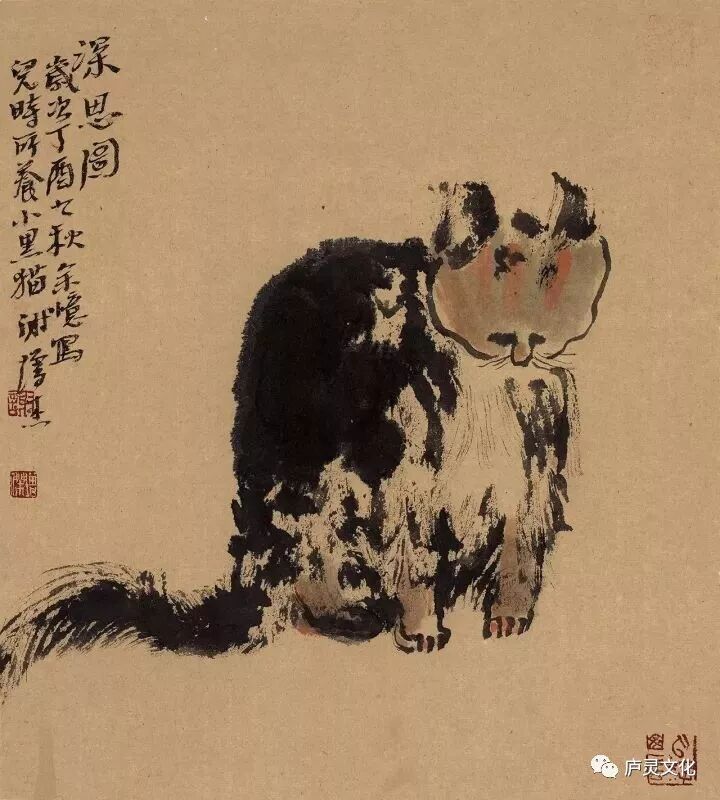 深思圖
歲次丁酉之秋余憶寫
兒時所養小黑猫 谢增杰
庐灵文化